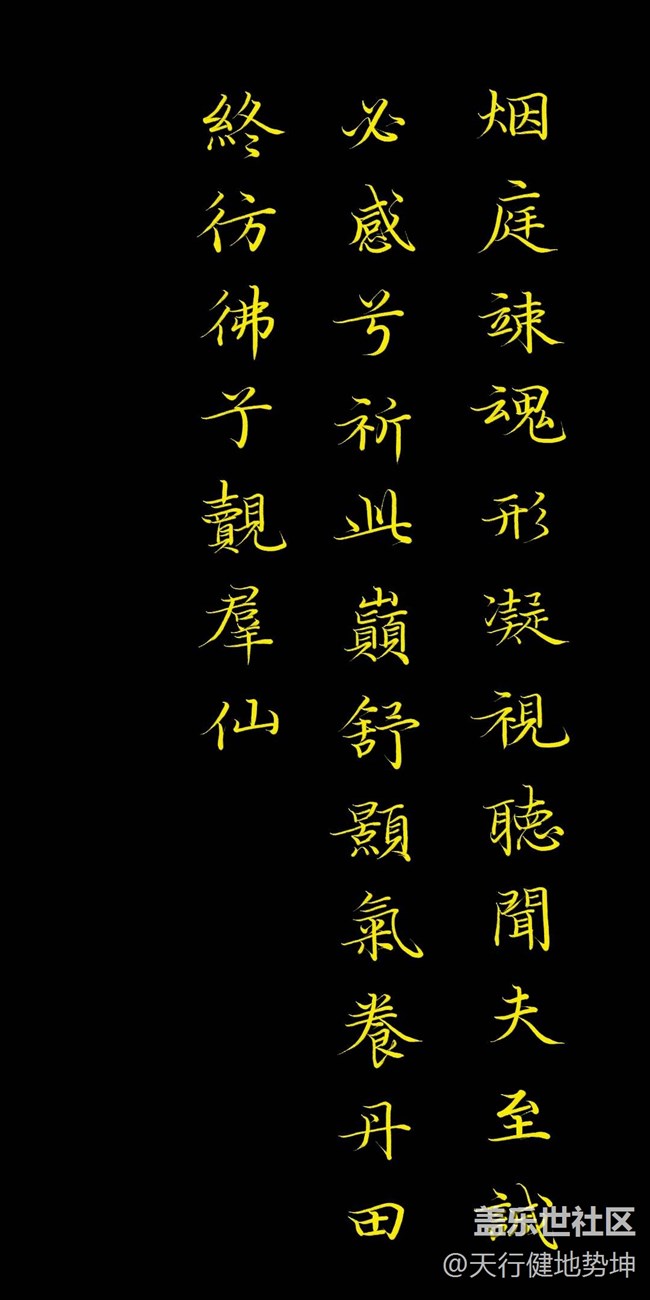 烟庭竦魂形凝視聴聞夫至誠
必感兮祈此巔舒顥氣養丹田
終彷彿兮覿羣仙
盖乐世社区
@天行健地势坤